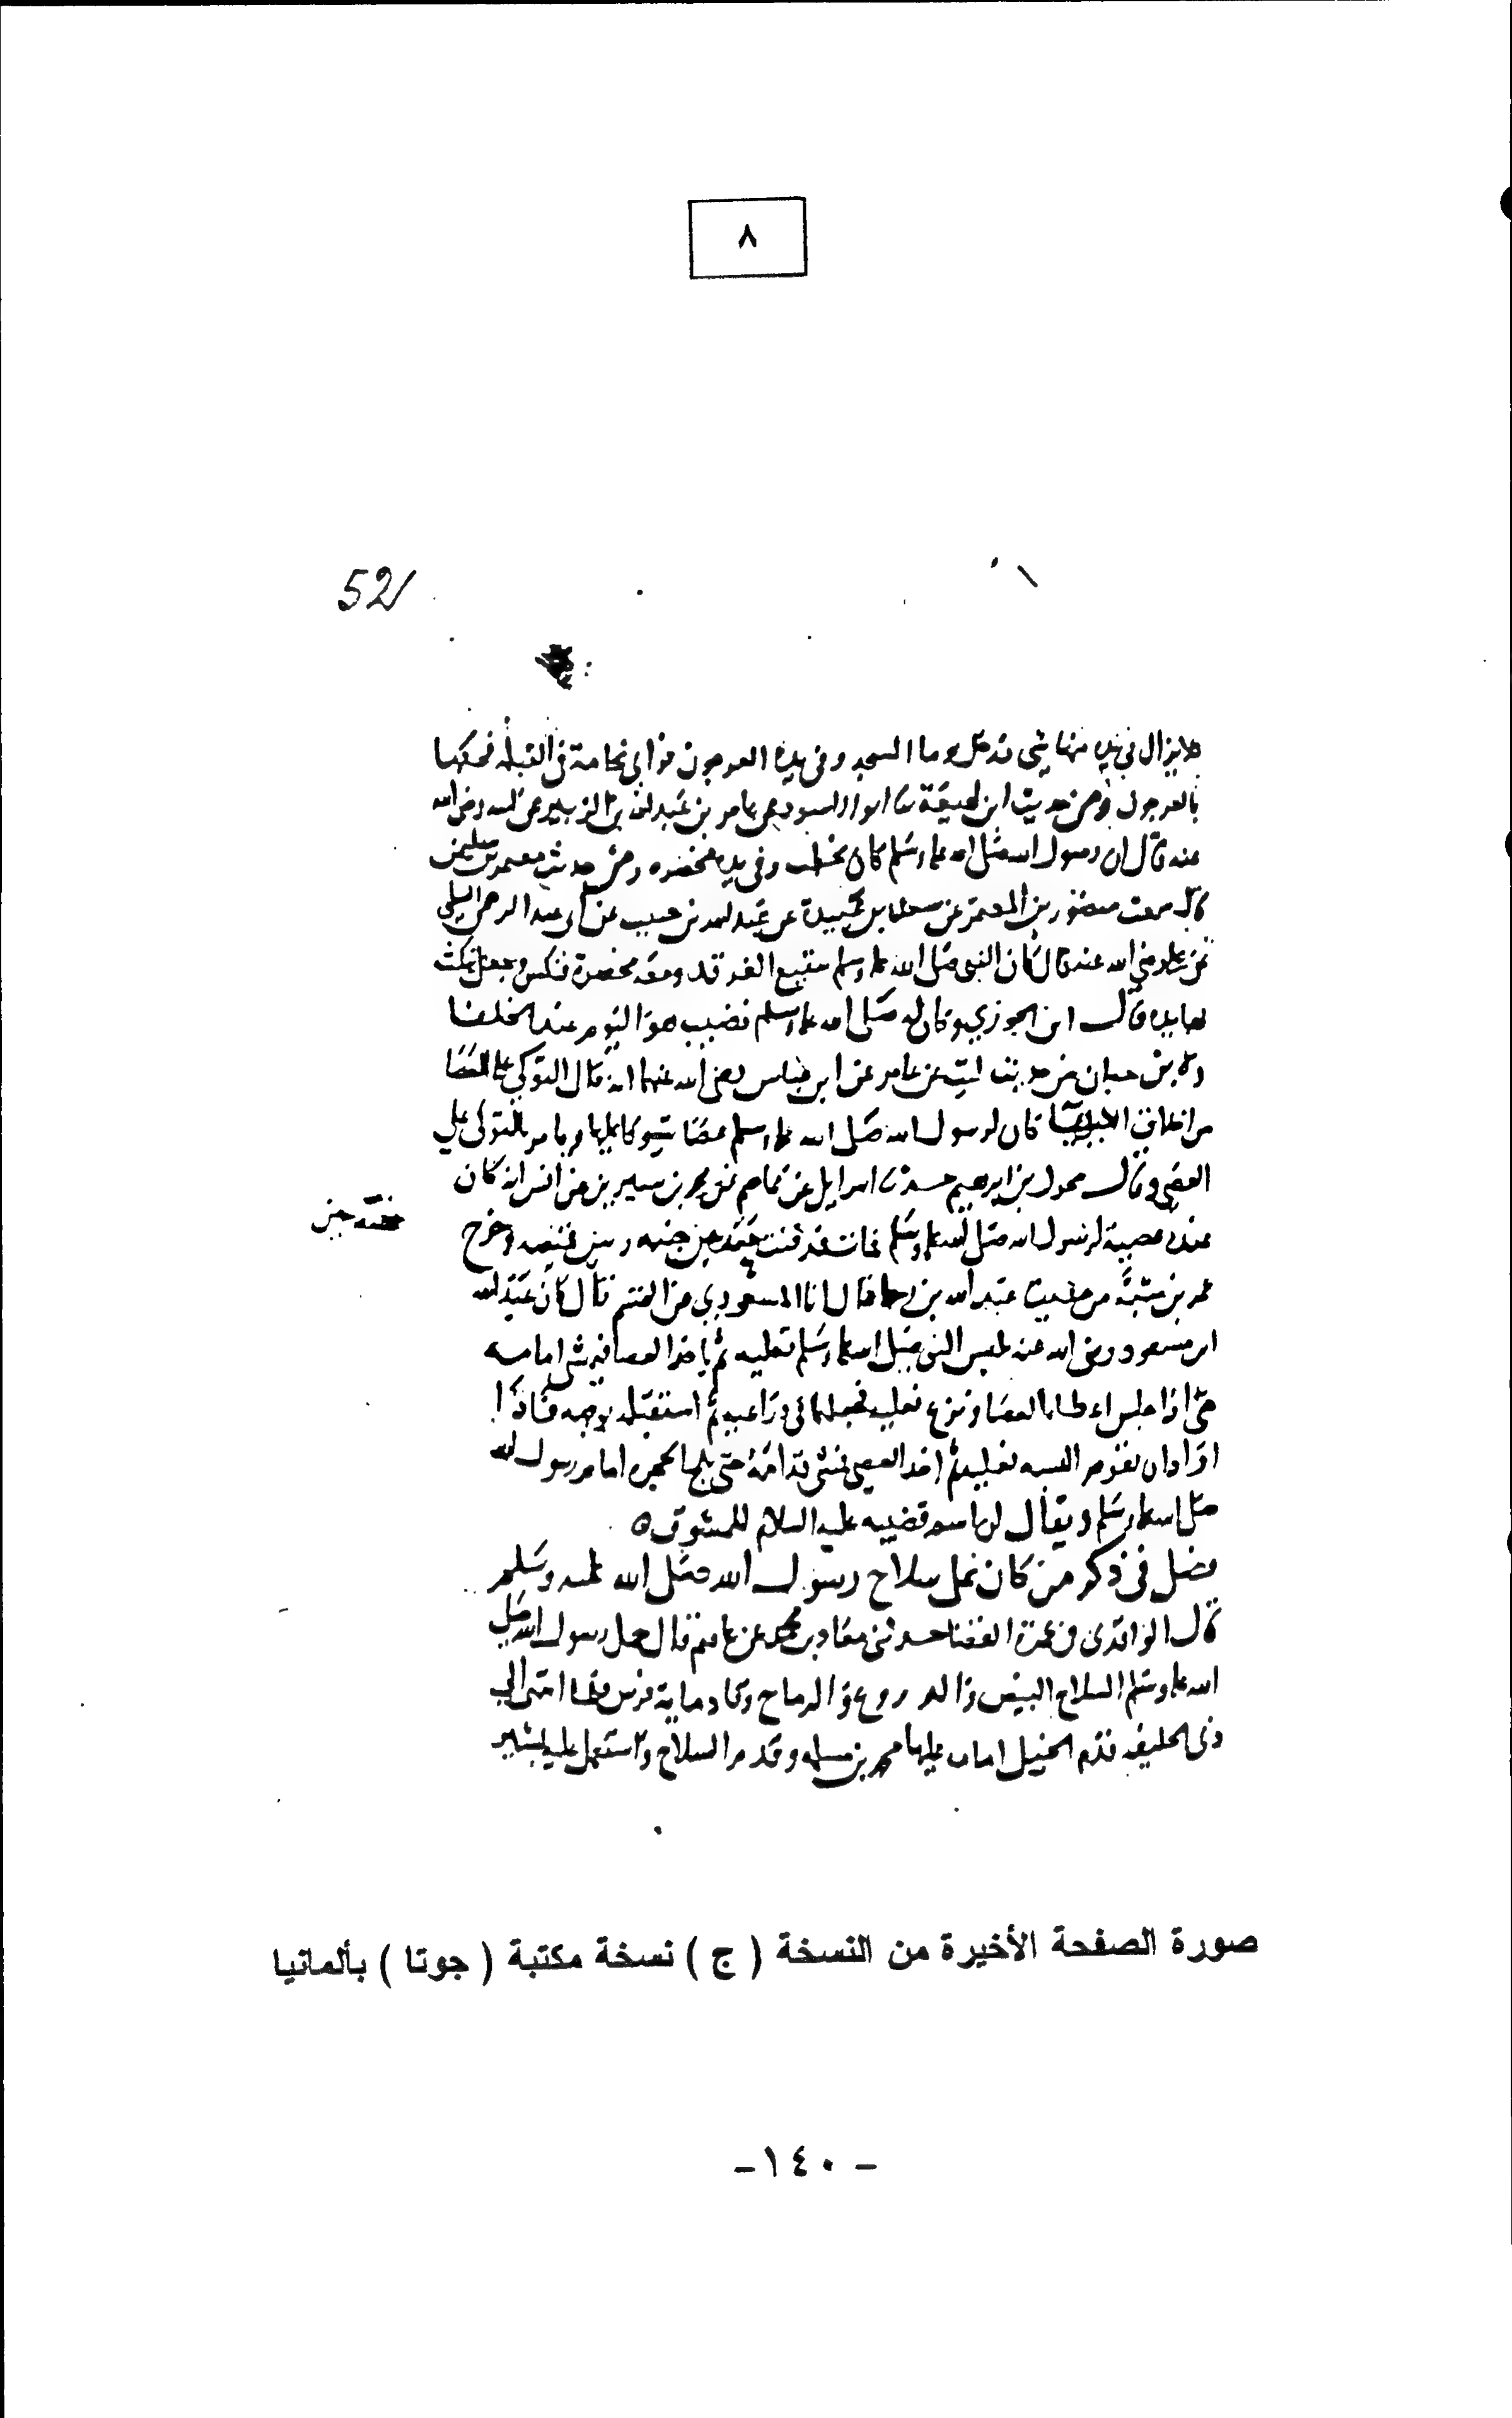 ٨
52
فلا يزال في يده منها شي فدخل يوما المسجد وفي يده العرجون فراي نخامة في القبلة فحكها
بالعرجون ومن حديث ابن لهيعة ابو الاسود عن عامر بن عبد الله بن الزبير عن ابيه رضي الله
عنه قال ان رسول الله صلى الله عليه وسلم كان يخطب وفي يده مخصره ومن حديث معتمر بن سليمن
قال سمعت منصور بن المعتمر عن سعد بن عبيدة عن عبد الله بن حبيب عن ابي عبد الرحمن السلمي
عن علي رضي الله عنه قال كان النبي صلى الله عليه وسلم ببقيع الغرقد ومعه مخصرة فنكس وجعل ينكت
بها بيده قال ابن الجوزي وكان له صلى الله عليه وسلم قضيب هو اليوم عند الخلفا
ولابن حبان من حديث ليث عن عامر عن ابن عباس رضي الله عنهما انه قال التوكي على العصا
من اخلاق الانبيا كان لرسول الله صلى الله عليه وسلم عصا يتوكا عليها ويامر بالتوكي علي
العصى وقال محول بن ابرهيم اسرايل عن عاصم عن محمد بن سيرين عن انس انه كان
عنده عصية لرسول الله صلى الله عليه وسلم فمات فدفنت معه بين جنبه وبين قميصه وخرج
عمر بن شبة من حديث عبد الله بن رجا قال انا المسعودي عن القسم قال كان عبد الله
ابن مسعود رضي الله عنه يلبس النبي صلى الله عليه وسلم نعليه ثم ياخذ العصا فيمشي امامه
حتى اذا جلس اعطاه العصا ونزع نعليه فجعلهما في ذراعيه ثم استقبله بوجهه فاذا
اراد ان يقوم البسه نعليه ثم اخذ العصى فمشى قدامه حتى يلج الحجره امام رسول الله
صلى الله عليه وسلم ويقال ان اسم قضيبه عليه السلام الممشوق ه
فصل في ذكر من كان على سلاح رسول الله صلى الله عليه وسلم
قال الواقدي في عمرة القضا حدثني معاذ بن محمد عن عاصم قال حمل رسول الله صلى
الله عليه وسلم السلاح البيض والدروع والرماح وقاد ماية فرس فلما انتهى الي
ذي الحليفه قدم الخيل امامه عليها محمد بن مسلمه وقدم السلاح واستعمل عليه بشير
صورة الصفحة الأخيرة من النسخة ( ج ) نسخة مكتبة ( جوتا ) بألمانيا
- ١٤٠ -